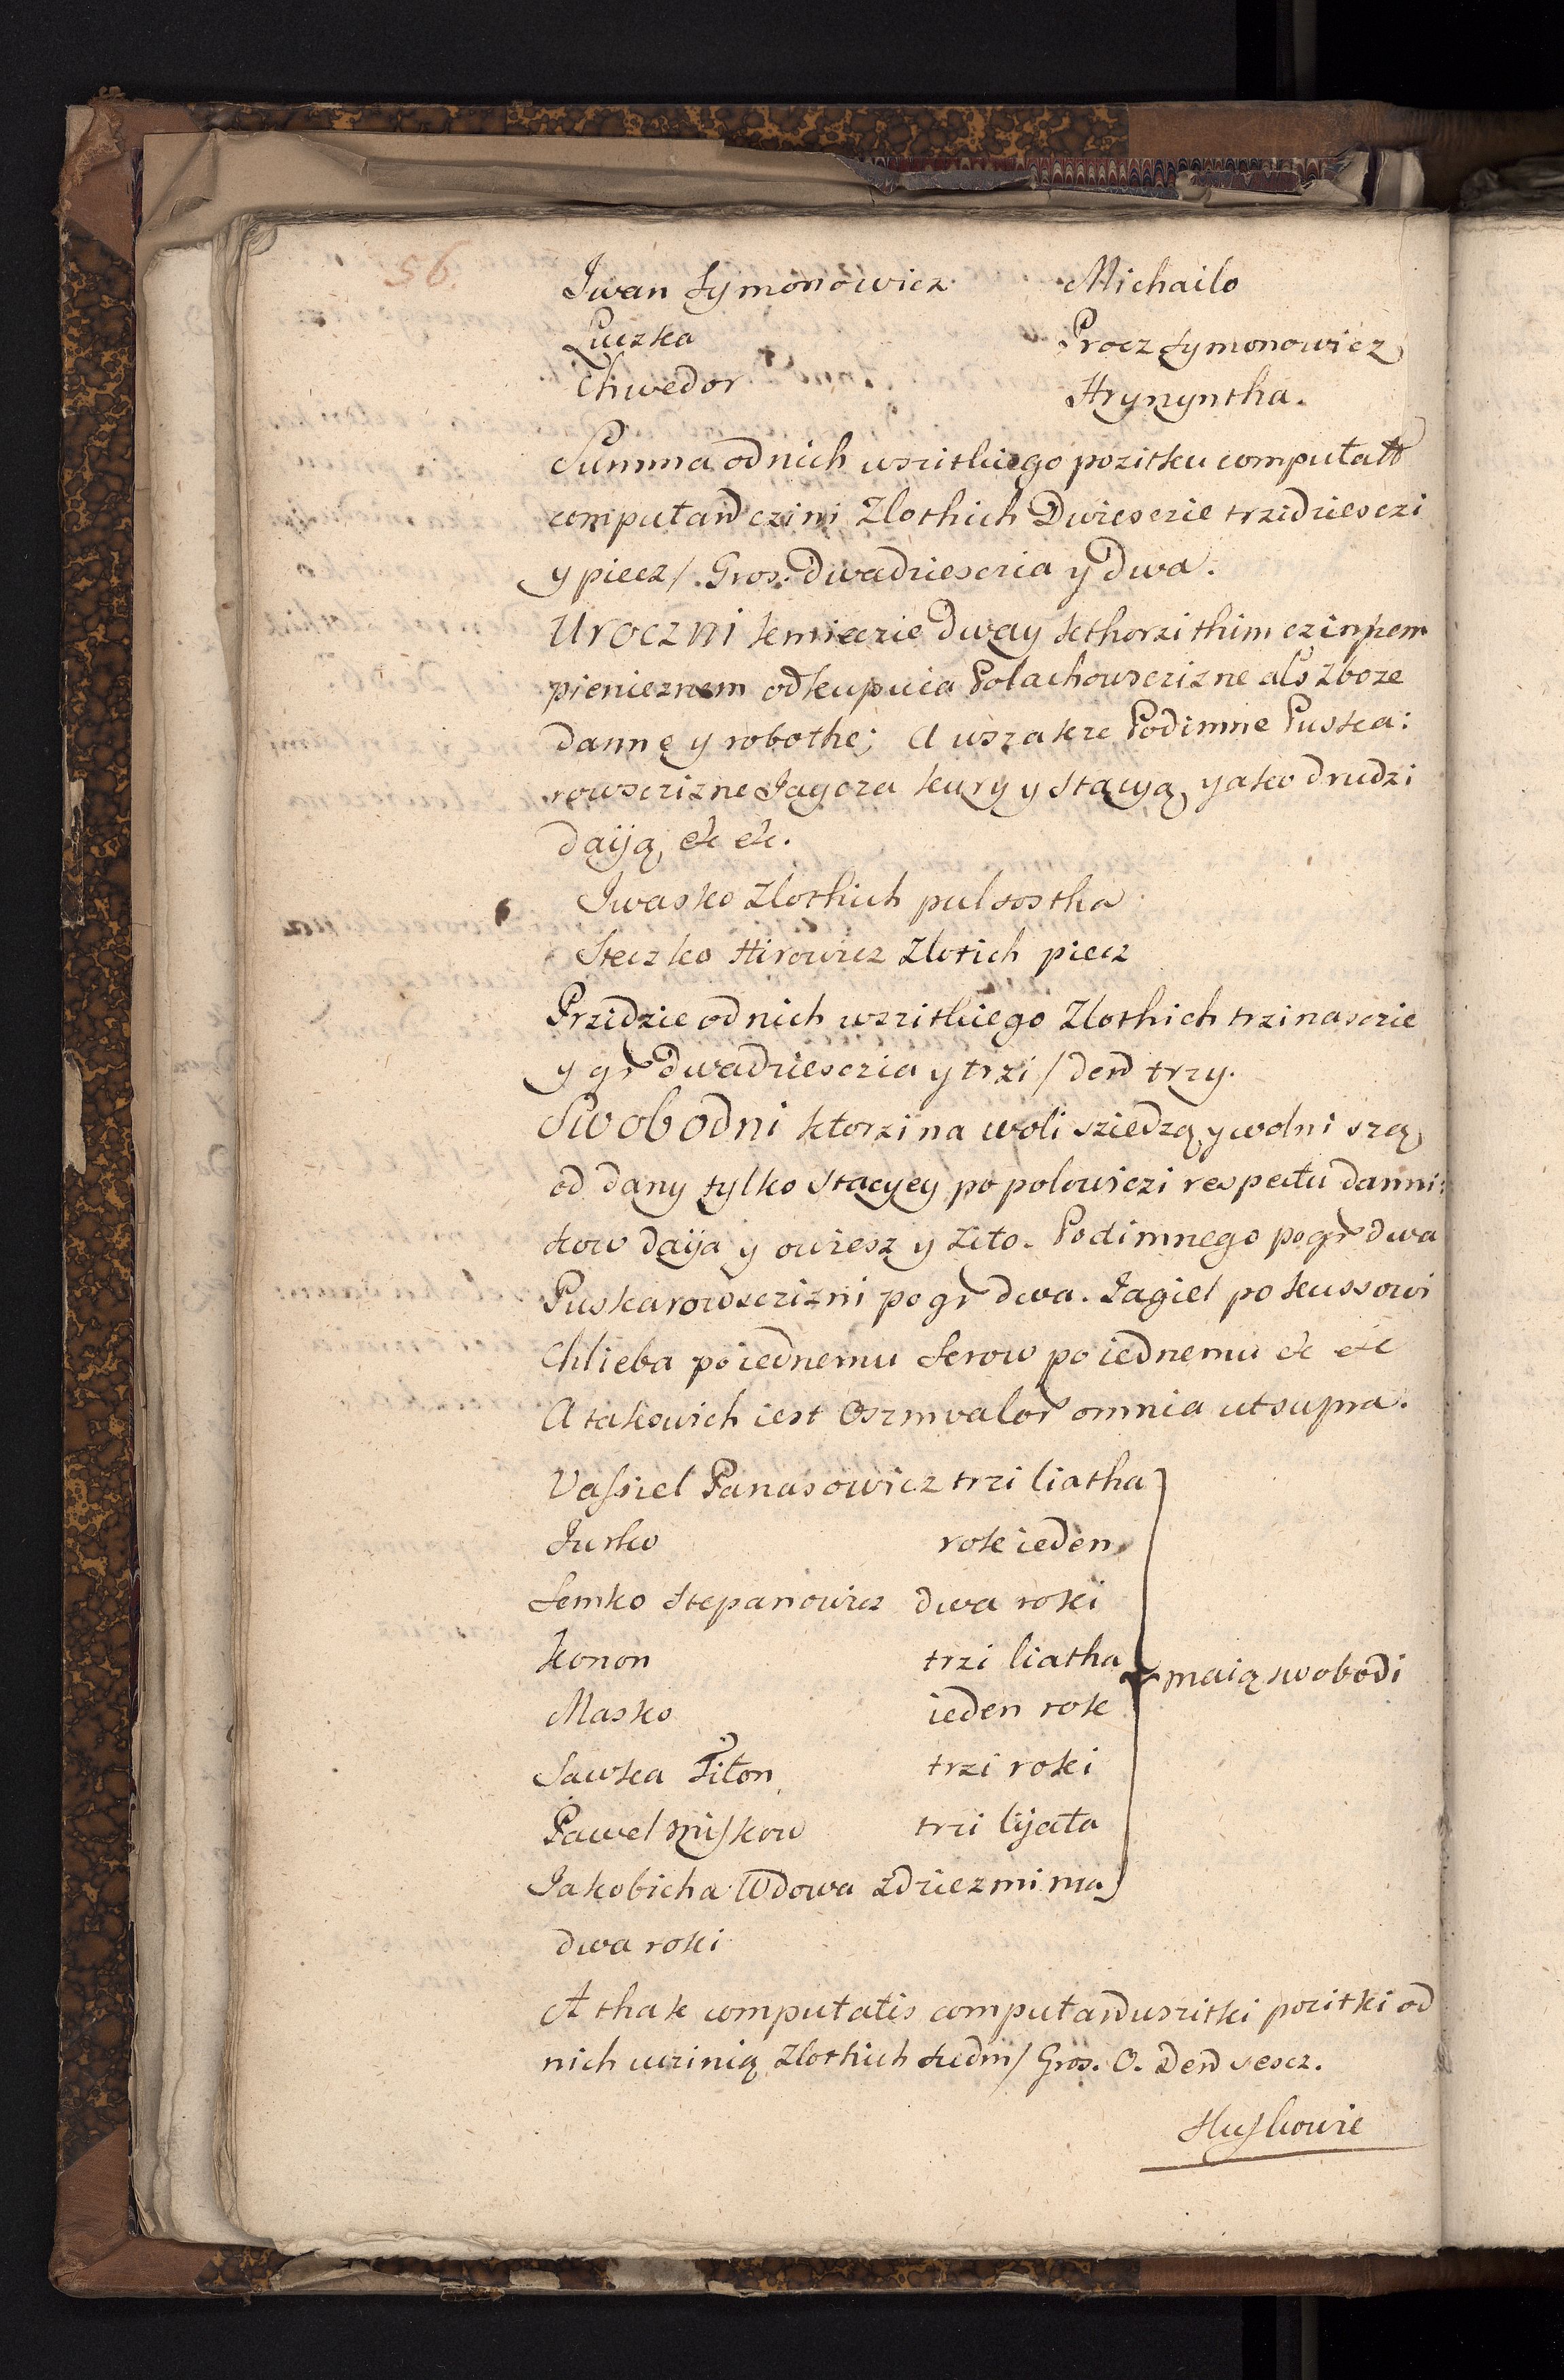 56.
Iwan Symonowicz Michailo
Luczka Procz Symonowicz
Chwedor Hrynyntha.
Summa od nich wszitkiego pozitku computatt
computand czini Zlothich Dwiesczie trzidziesczi
y piecz/. Gros. dwadziesczia y dwa.
Uroczni kmieczie dway kthorzi thim czinszem
pienieznem odkupuia Polachowsczizne als Zboze
dannę y robothe; A wszakze Podimne Puska:
rowsczizne Iaycza kury y Stacyą yako drudzi
daiją, etc etc.
Iwasko Zlothich pulsostha
Steczko Hirowicz Zlotich piecz
Przidzie od nich wszitkiego Zlothich trzinasczie
y gr dwadziesczia y trzi / den trzy.
Swobodni ktorzi na woli sziedzą y wolni szą
od dany tylko Stacyey po polowiczi respectu danni:
kow daija y owiesz y zito. Podimnego po gr dwa
Puskarowsczizni po gr dwa. Iagiel po kussowi
Chlieba po iednemu Serow po iednemu etc etc
A takowich iest Oszm valor omnia ut supra.
Vassiel Panasowicz trzi liatha
Iurko rok ieden
Semko Stepanowicz dwa roki
Konon trzi liatha
maią swobodi
Masko ieden rok
Sawka Filon trzi roki
Pawel Miskow trzi lijata
Iakobicha Wdowa z dziezmi ma
dwa roki
A thak computatis computand wszitki pozitki od
nich uczinią Zlothich siedm/ Gros. O. Den sescz.
Huskowie